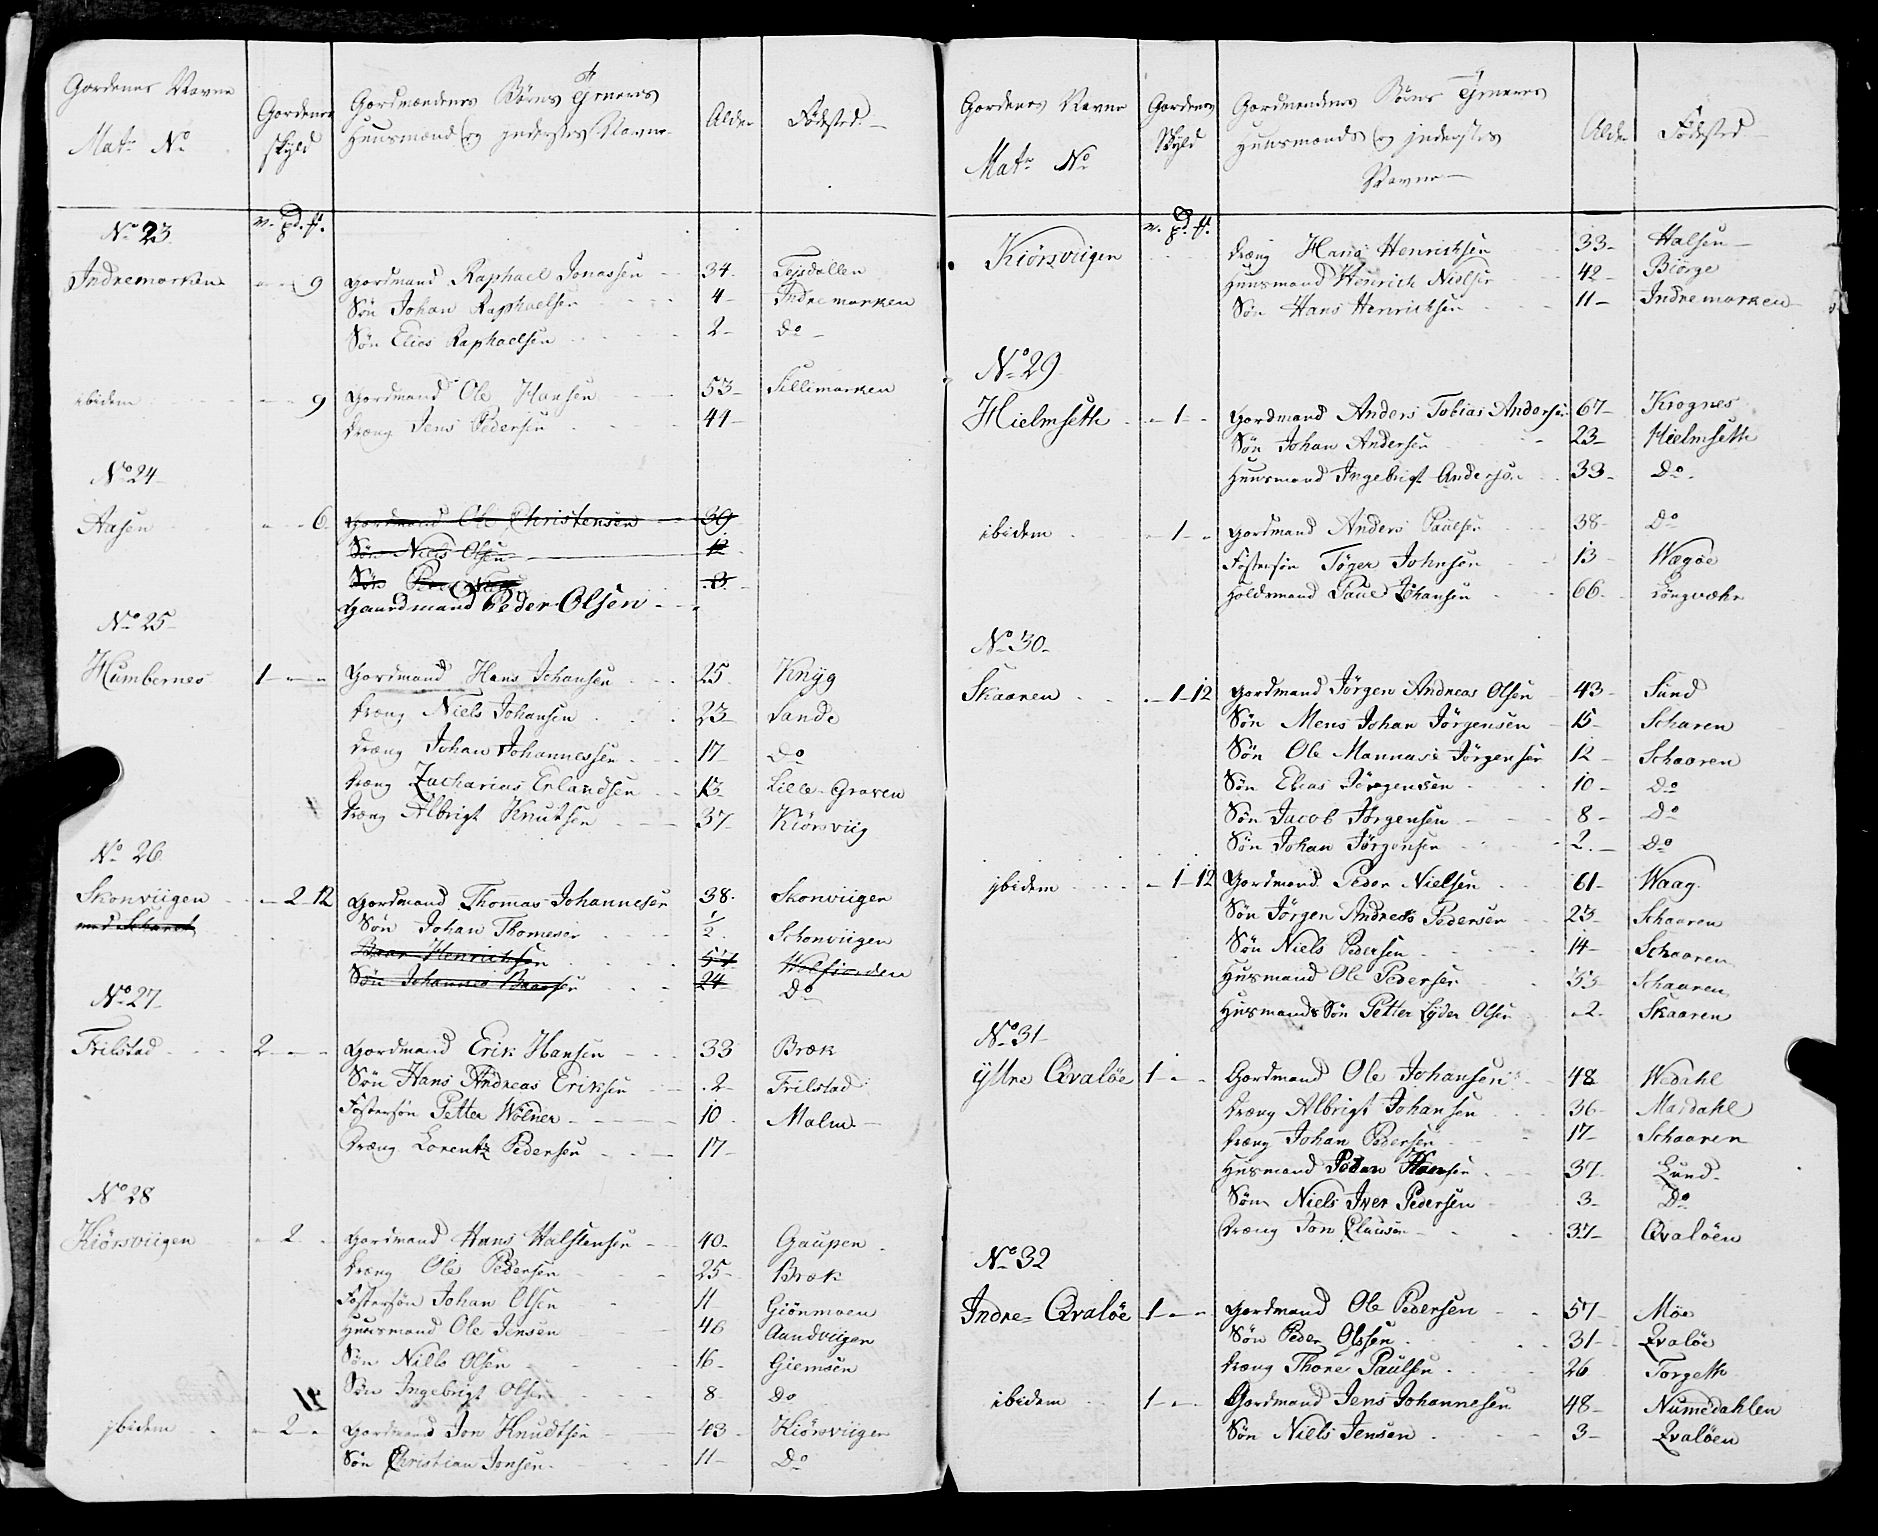 Gordenes Navne
Matr No
Gordenes
skyld
Gordmændenes Børns Tieneres
Huusmænd og jnderstes Navne
Alder
Fødsted
v. pd. ff.
No 23
Indremarken 9 Gordmand Raphael Jonassen 34 Tejsdallen
Søn Johan Raphaelsen 4 Indremarken
Søn Elias Raphaelsen 2 Do
ibidem 9 Gordmand Ole Hansen 53 Lillemarken
Dræng Jens Pedersen 41
No 24
Aasen 6 Gordmand Ole Christensen 39
Søn Niels Olsen 12
Søn
Gaardmand Peder Olsen
No 25
Humbernes 1 Gordmand Hans Johansen 25 Knÿg
Dræng Niels Johansen 23 Sande
Dræng Johan Johannessen 17 Do
Dræng Zacharias Erlandsen 13 Lille-Graven
Dræng Albrigt Knutsen 37 Kiørsviig
No 26
Skonviigen 2 12 Gordmand Thomas Johannesen 38 Skonviigen
med Søn Johan Thomesen 1/2 Schonviigen
Baar Henrichsen 57
Søn Johannes Baarsen 24 Do
No 27
Frilstad 2 Gordmand Erik Hansen 33 Bræk
Søn Hans Andreas Eriksen 2 Frilstad
Fostersøn Petter Wølner 10 Malm
Dræng Lorentz Pedersen 17
No 28
Kiørsviigen 2 Gordmand Hans Halstensen 40 Gaupen
Dræng Ole Pedersen 25 Bræk
Fostersøn Johan Olsen 11 Giønmoen
Huusmand Ole Jensen 46 Aandviigen
Søn Niels Olsen 16 Giemsen
Søn Ingebrigt Olsen 8 Do
jbidem 2 Gordmand Jon Knudtsen 43 Kiørsviigen
Søn Christian Jonsen 11 Do
Gordenes Navne
Matr No
Gordenes
Skyld
Gordmændenes Børns Tieneres
Huusmænds og jnderstes
Navne
Alder
Fødsted
v. pd. ff.
Kiørsviigen Dræng Hans Henrichsen 33 Halsen
Huusmand Henrich Nielsen 42 Biørge
Søn Hans Henrichsen 11 Indremarken
No 29
Hielmseth 1 Gordmand Anders Tobias Andersen 67 Krognes
Søn Johan Andersen 23 Hielmseth
Huusmand Ingebrigt Andersen 33 Do
ibidem 1 Gordmand Anders Paulsen 38 Do
Fostersøn Tøger Johnsen 13 Wægøe
Holdsmand Paul Johansen 66 Longvæhr
No 30
Skaaren 1 12 Gordmand Jørgen Andreas Olsen 43 Sund
Søn Mens Johan Jørgensen 15 Scharen
Søn Ole Mannase Jørgensen 12 Schaaren
Søn Elias Jørgensen 10 Do
Søn Jacob Jørgensen 8 Do
Søn Johan Jørgensen 2 Do
jbidem 1 12 Gordmand Peder Nielsen 61 Waag
Søn Jørgen Andreas Pedersen 23 Schaaren
Søn Niels Pedersen 14 Schaaren
Husmand Ole Pedersen 33 Schaaren
Husmands Søn Petter Lyder Olsen 2 Skaaren
No 31
Yttre Qvaløe 1 Gordmand Ole Johansen 48 Wedahl
Dræng Albrigt Johansen 36 Mardahl
Dræng Johan Pedersen 17 Schaaren
Husmand Peder Hansen 37 Lund
Søn Niels Iver Pedersen 3 Do
Dræng Jon Clausen 37 Qvaløen
No 32
Indre Qvaløe 1 Gordmand Ole Pedersen 57 Møe
Søn Peder Olssen 31 Qvaløe
Dræng Thore Paulsen 26 Torgeth
ibidem 1 Gordmand Jens Johannesen 48 Numedahlen
Søn Niels Jensen 3 Qvaløen